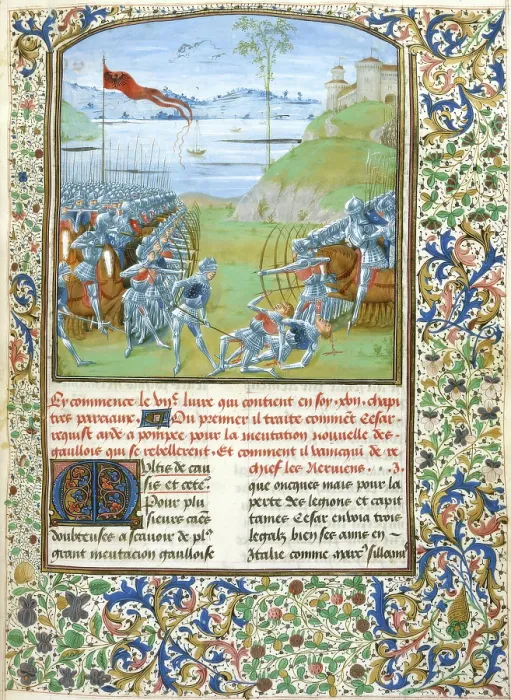 Cy commence le vije livre qui contient en soy xvij chapi
tres parciaux Ou premier il traite comment Cesar
requist ayde a pompee pour la mentation nouvelle des
gaullois qui se rebellerent. Et comment il vainqui de re
chief les Nerviens . . . J.
Mltis de cau
sis et cete.
Pour plu
sieurs cases
doubteuses a scavoir de plus
grant mentacion gauloise
que oncques mais pour la
perte des legions et capit
taines Cesar envoia trois
legatz bien ses amis en
Italie comme marc sillanus